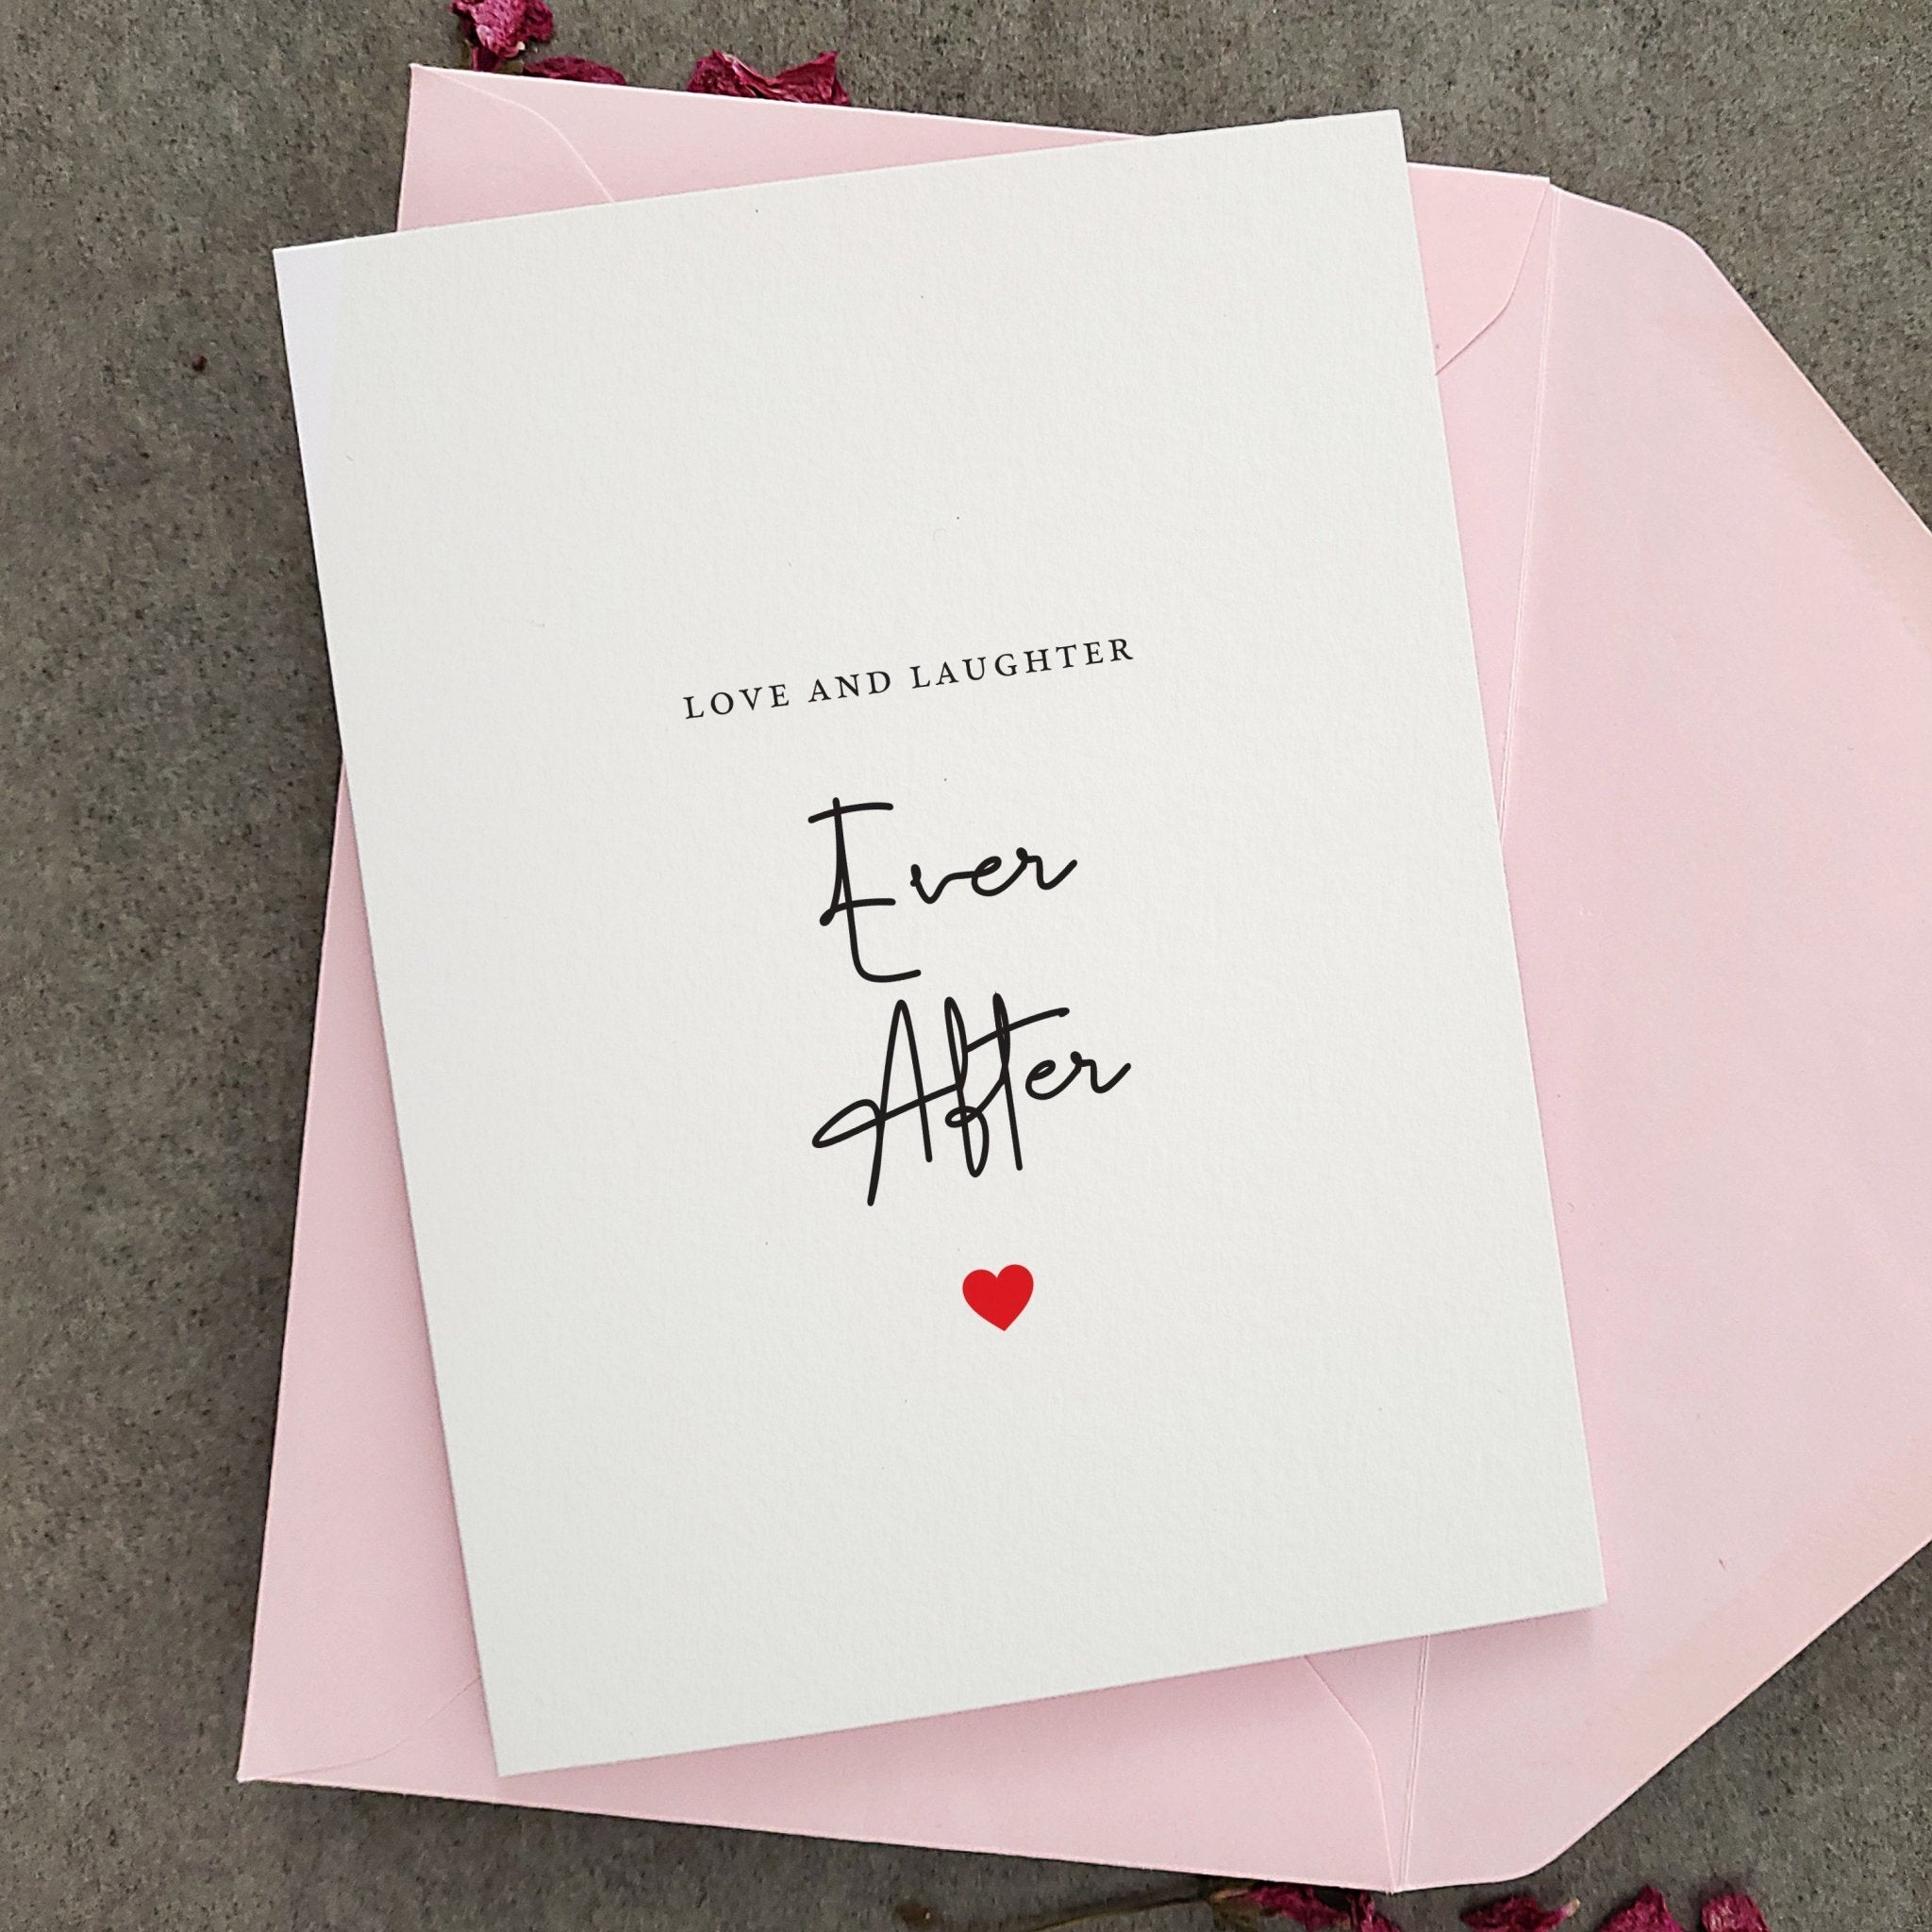 LOVE AND LAUGHTER
Ever
After